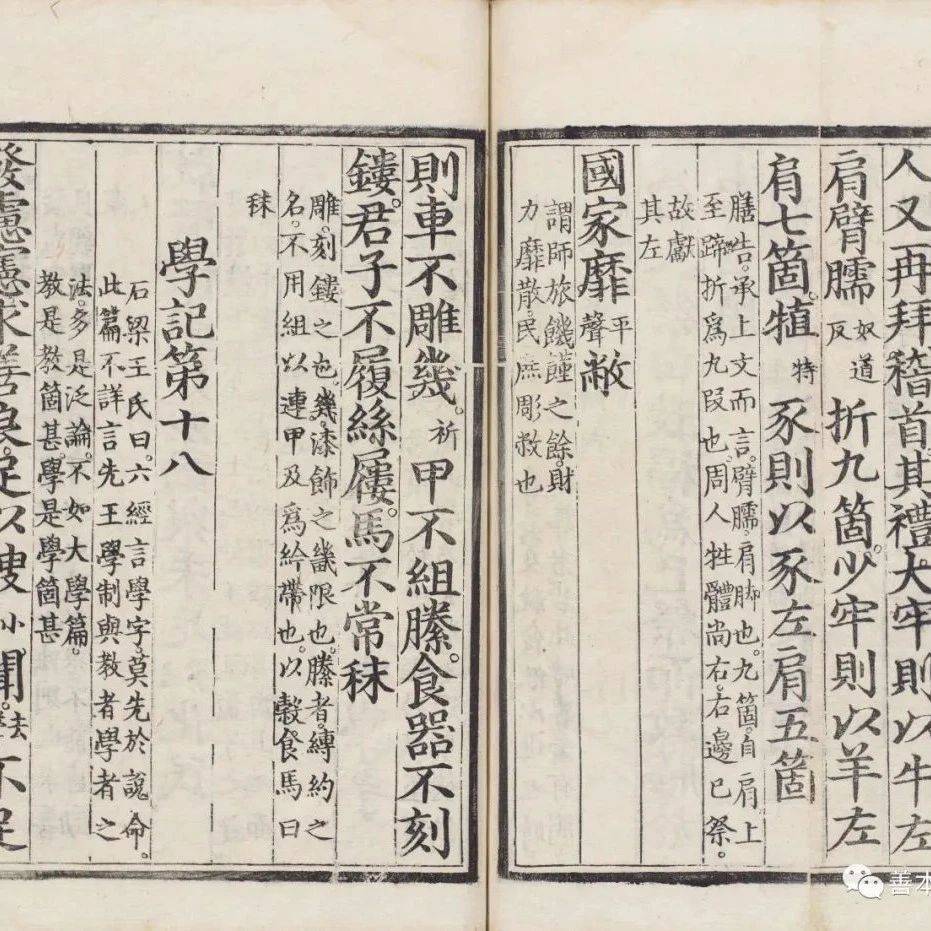 人又再拜稽首其禮大牢則以牛左
肩臂臑奴道反折九箇少牢則以羊左
肩七箇犆特豕則以豕左肩五箇
膳告承上文而言臂臑肩脚也九箇自肩上
至蹄折爲九段也周人牲體尚右右邊已祭
故獻
其左
國家靡平聲敝
謂師旅饑饉之餘財
力靡散民庶彫敝也
則車不雕幾祈甲不組縢食器不刻
鏤君子不履絲屨馬不常秣
雕刻鏤之也幾漆飾之畿限也縢者縛約之
名不用組以連甲及爲紟帶也以穀食馬曰
秣
學記第十八
石梁王氏曰六經言學字莫先於說命
此篇不詳言先王學制與教者學者之
法多是泛論不如大學篇
教是教箇甚學是學箇甚
發慮憲求善良足以謏小聞去聲不足
善本